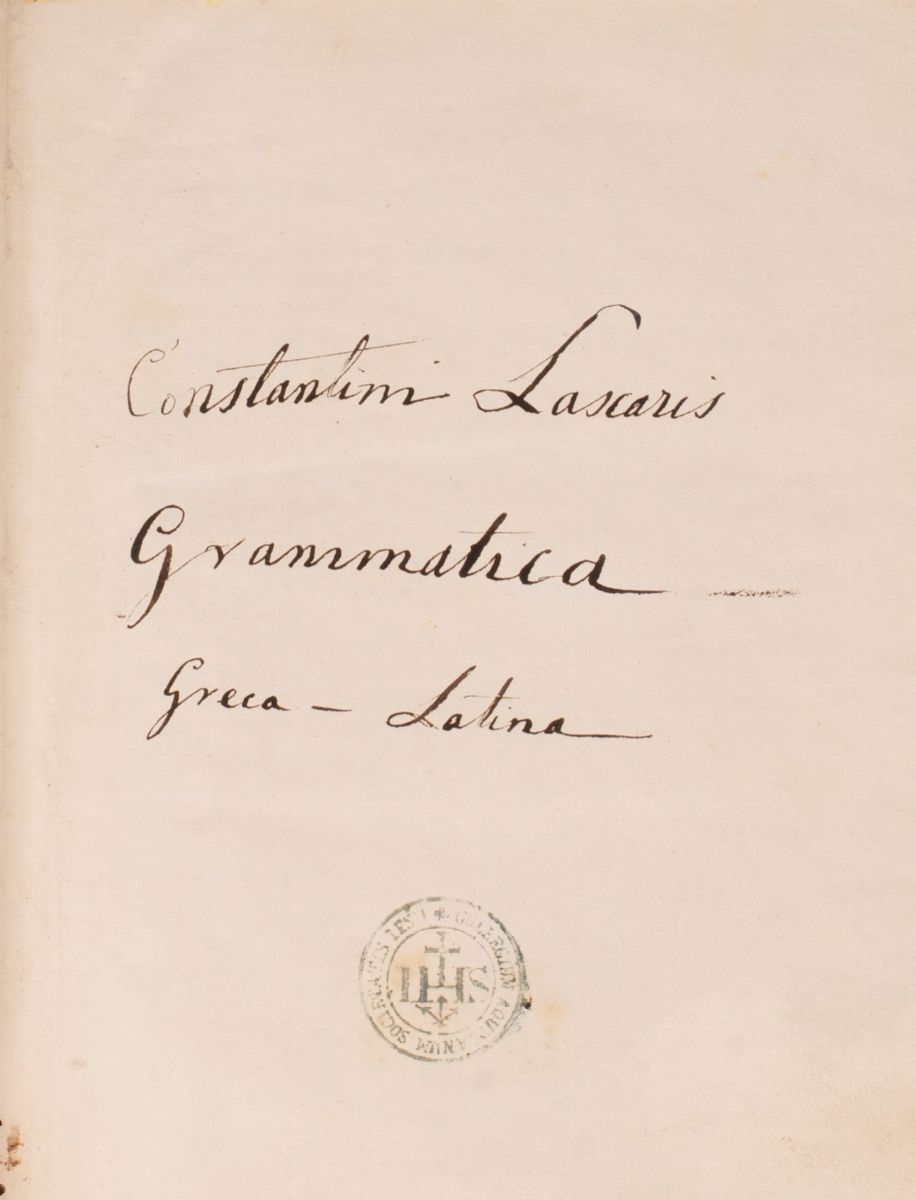 Constantini Lascaris
Grammatica
Greca - Latina
COLLEGIUM AQUILANUM SOCIETATIS IESU
IHS